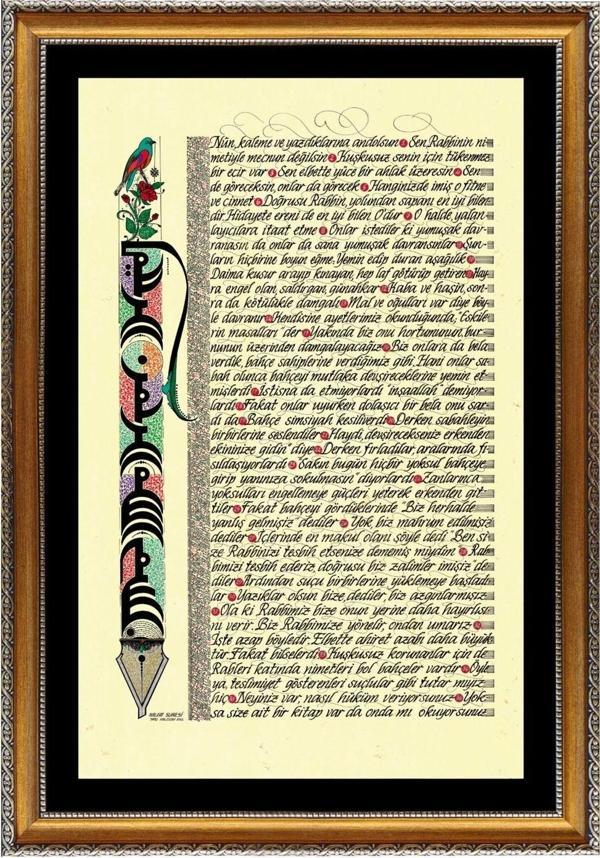 Nûn, kaleme ve yazdıklarına andolsun Sen Rabbinin ni
metiyle mecnun değilsin Kuşkusuz senin için tükenmez
bir ecir var Sen elbette yüce bir ahlak üzeresin Sen
de göreceksin, onlar da görecek Hanginizde imiş o fitne
ve cinnet Doğrusu Rabbin, yolundan sapanı en iyi bilen
dir Hidayete ereni de en iyi bilen O'dur O halde yalan
layıcılara itaat etme Onlar istediler ki yumuşak dav
ranasın da onlar da sana yumuşak davransınlar Şun
ların hiçbirine boyun eğme: Yemin edip duran aşağılık
Daima kusur arayıp kınayan, hep laf götürüp getiren Hay
ra engel olan, saldırgan, günahkar Kaba ve haşin, son
ra da kötülükle damgalı Mal ve oğulları var diye böy
le davranır Kendisine ayetlerimiz okunduğunda, "Eskile
rin masalları" der Yakında biz onu hortumunun, bur
nunun üzerinden damgalayacağız Biz onlara da bela
verdik, bahçe sahiplerine verdiğimiz gibi. Hani onlar sa
bah olunca bahçeyi mutlaka devşireceklerine yemin et
mişlerdi İstisna da etmiyorlardı "inşaallah" demiyor
lardı Fakat onlar uyurken dolaşıcı bir bela onu sar
dı da Bahçe simsiyah kesiliverdi Derken sabahleyin
birbirlerine seslendiler Haydi, devşirecekseniz erkenden
ekininize gidin" diye Derken fırladılar, aralarında fı
sıldaşıyorlardı Sakın bugün hiçbir yoksul bahçeye
girip yanınıza sokulmasın" diyorlardı Zanlarınca
yoksulları engellemeye güçleri yeterek erkenden git
tiler Fakat bahçeyi gördüklerinde "Biz herhalde
yanlış gelmişiz" dediler Yok, biz mahrum edilmişiz
dediler İçlerinde en makul olanı söyle dedi "Ben si
ze Rabbinizi tesbih etsenize dememiş miydim" Rab
bimizi tesbih ederiz, doğrusu biz zalimler imişiz" de
diler Ardından suçu birbirlerine yüklemeye başladı
lar Yazıklar olsun bize, dediler, biz azgınlarmışız
Ola ki Rabbimiz bize onun yerine daha hayırlısı
nı verir. Biz Rabbimize yönelir, ondan umarız
İşte azap böyledir. Elbette ahiret azabı daha büyük
tür. Fakat bilselerdi Kuşkusuz korunanlar için de
Rableri katında nimetleri bol bahçeler vardır Öyle
ya, teslimiyet gösterenleri suçlular gibi tutar mıyız
hiç Neyiniz var, nasıl hüküm veriyorsunuz Yok
sa size ait bir kitap var da onda mı okuyorsunuz
KALEM SURESİ